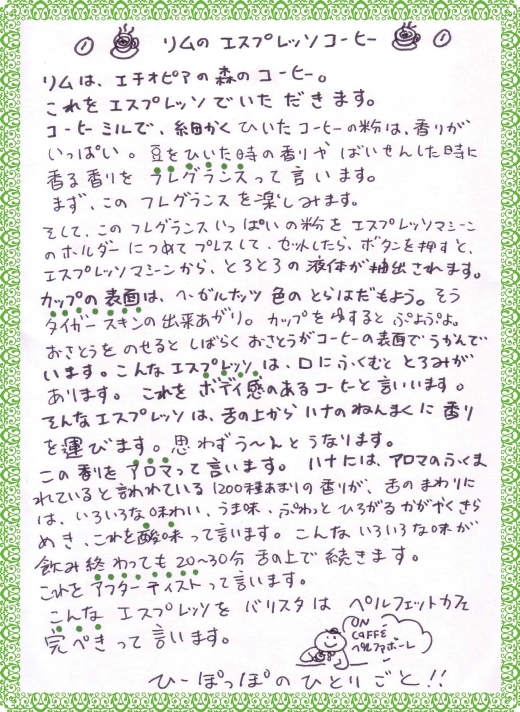 ① リムの エスプレッソコーヒー ①
リムは、エチオピアの森のコーヒー。
これを エスプレッソでいただきます。
コーヒーミルで、細かく ひいたコーヒーの粉は、香りが
いっぱい。豆をひいた時の香りや ばいせんした時に
香る香りを フレグランスって言います。
まず、この フレグランスを楽しみます。
そして、このフレグランスいっぱいの粉を エスプレッソマシーン
のホルダーにつめてプレスして、セットしたら、ボタンを押すと、
エスプレッソマシーンから、とろとろの液体が抽出されます。
カップの表面は、ヘーゼルナッツ色のとらはだもよう。そう
タイガースキンの出来あがり。カップをゆすると ぷよぷよ。
おさとうを のせると しばらく おさとうがコーヒーの表面でうかんで
います。こんなエスプレッソは、口にふくむと とろみが
あります。これを ボディ感のあるコーヒーと言いいます。
そんなエスプレッソは、舌の上から ハナのねんまくに 香り
を運びます。思わず う〜んとうなります。
この香りを アロマって言います。ハナには、アロマのふくま
れていると言われている 1200種あまりの香りが、舌のまわりに
は、いろいろな味わい、うま味、ふわっと ひろがる かがやくきら
めき、これを酸味って言います。こんな いろいろな味が
飲み終わっても 20〜30分 舌の上で続きます。
これを アフターテイストって言います。
こんな エスプレッソを バリスタは ペルフェットカフェ
完ぺきって言います。
ON
CAFFE
ペルファボーレ
ひーぽっぽのひとりごと!!